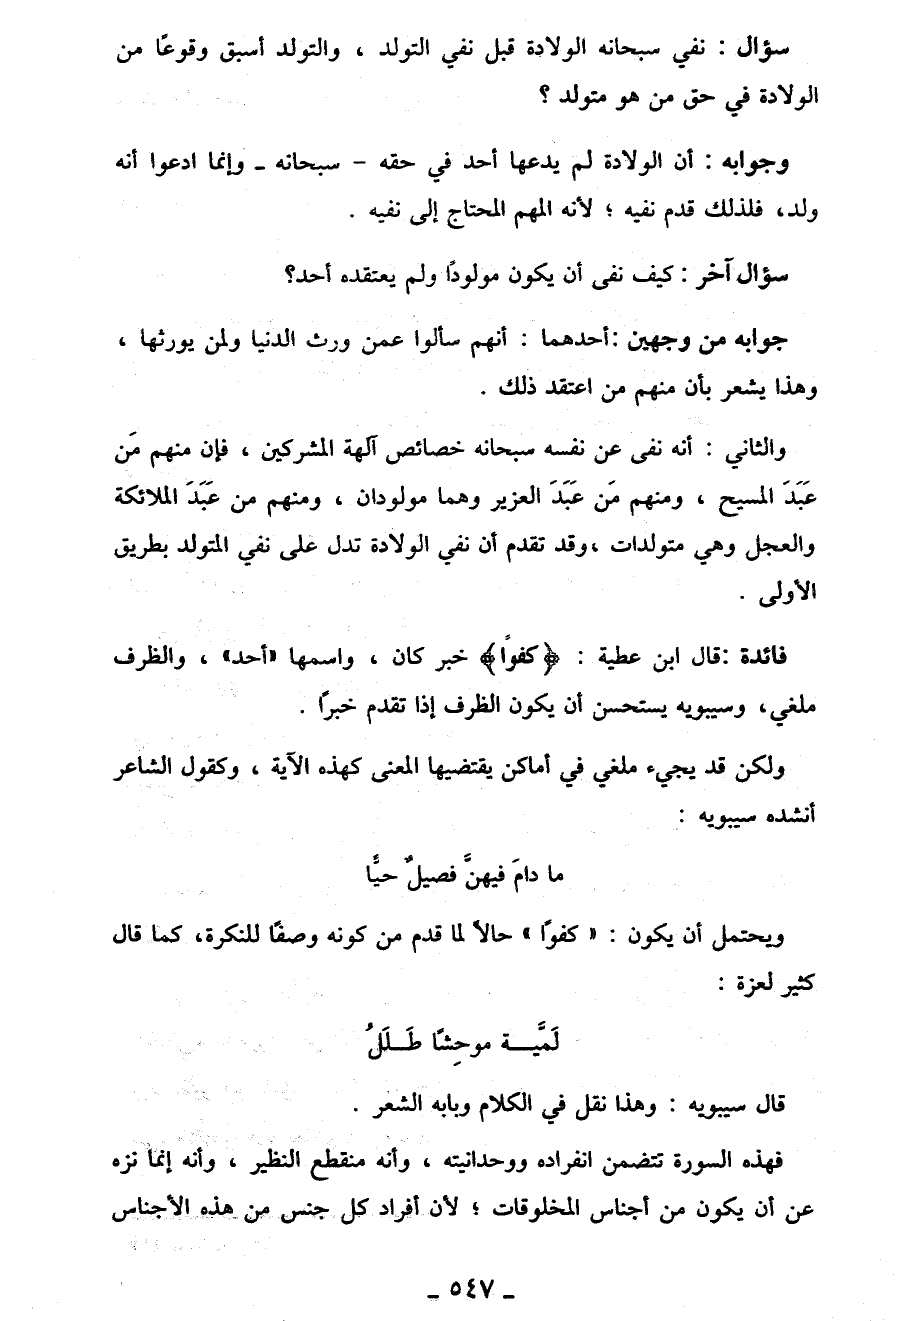 سؤال : نفي سبحانه الولادة قبل نفي التولد ، والتولد أسبق وقوعًا من
الولادة في حق من هو متولد ؟
وجوابه : أن الولادة لم يدعها أحد في حقه – سبحانه ـ وإنما ادعوا أنه
ولد، فلذلك قدم نفيه ؛ لأنه المهم المحتاج إلى نفيه .
سؤال آخر : كيف نفى أن يكون مولودًا ولم يعتقده أحد؟
جوابه من وجهين :أحدهما : أنهم سألوا عمن ورث الدنيا ولمن يورثها ،
وهذا يشعر بأن منهم من اعتقد ذلك .
والثاني : أنه نفى عن نفسه سبحانه خصائص آلهة المشركين ، فإن منهم مَن
عَبَدَ المسيح ، ومنهم مَن عَبَدَ العزير وهما مولودان ، ومنهم من عَبَدَ الملائكة
والعجل وهي متولدات ،وقد تقدم أن نفي الولادة تدل على نفي المتولد بطريق
الأولى .
فائدة :قال ابن عطية : ﴿كفوًا﴾ خبر كان ، واسمها «أحد» ، والظرف
ملغي، وسيبويه يستحسن أن يكون الظرف إذا تقدم خبرًا .
ولكن قد يجيء ملغي في أماكن يقتضيها المعنى كهذه الآية ، وكقول الشاعر
أنشده سيبويه :
ما دامَ فيهنَّ فصيلٌ حيًّا
ويحتمل أن يكون : « كفوًا » حالاً لما قدم من كونه وصفًا للنكرة، كما قال
كثير لعزة :
لَميَّـــة موحِشًا طَــلَلُ
قال سيبويه : وهذا نقل في الكلام وبابه الشعر .
فهذه السورة تتضمن انفراده ووحدانيته ، وأنه منقطع النظير ، وأنه إنما نزه
عن أن يكون من أجناس المخلوقات ؛ لأن أفراد كل جنس من هذه الأجناس
ـ ٥٤٧ ـ